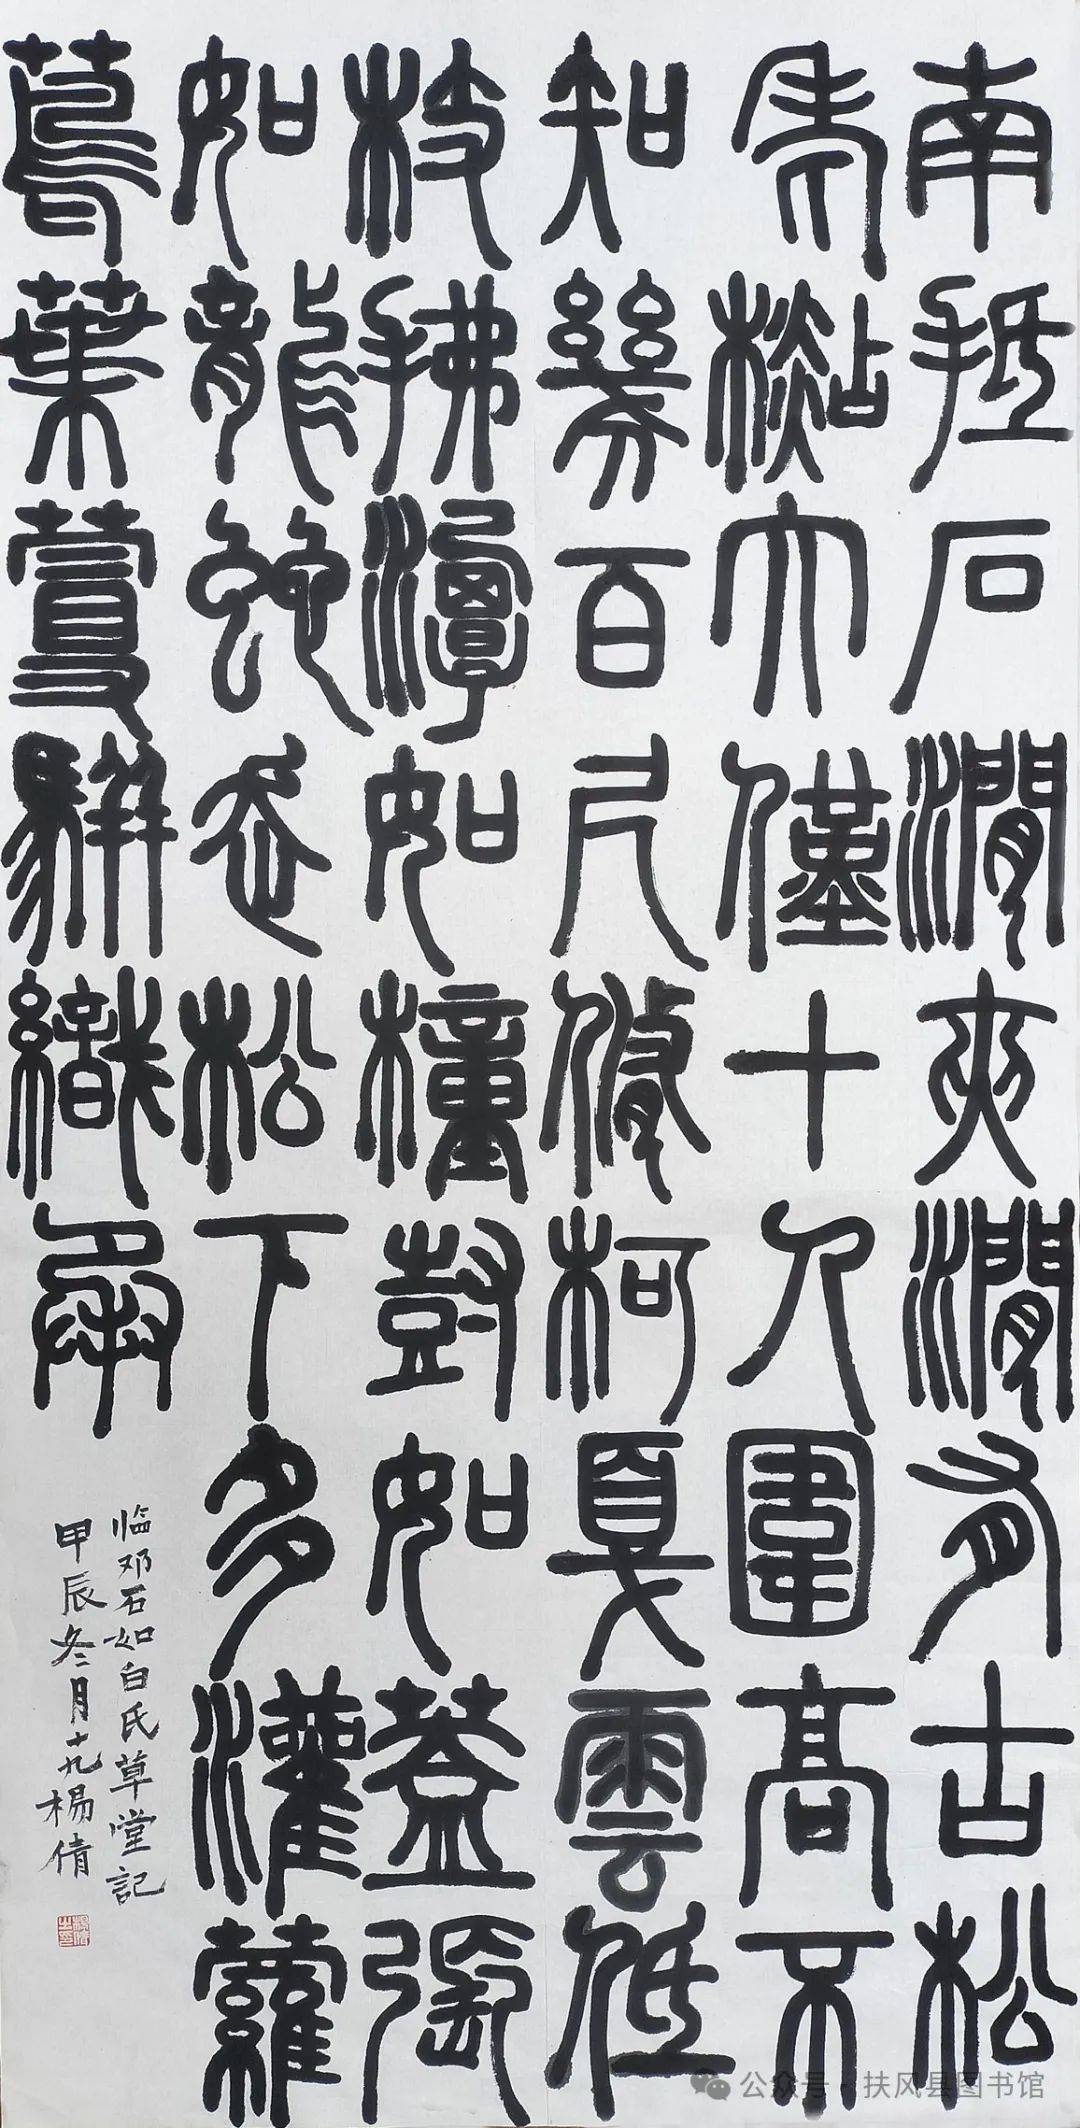 南抵石澗夾澗有古松
老杉大僅十人圍高不
知幾百尺修柯戛雲低
枝拂潭如幢豎如蓋張
如龍蛇走松下多灌叢
蘿葉蔓駢織承
临邓石如白氏草堂記
甲辰冬二月十九杨倩
公众号·扶风县图书馆